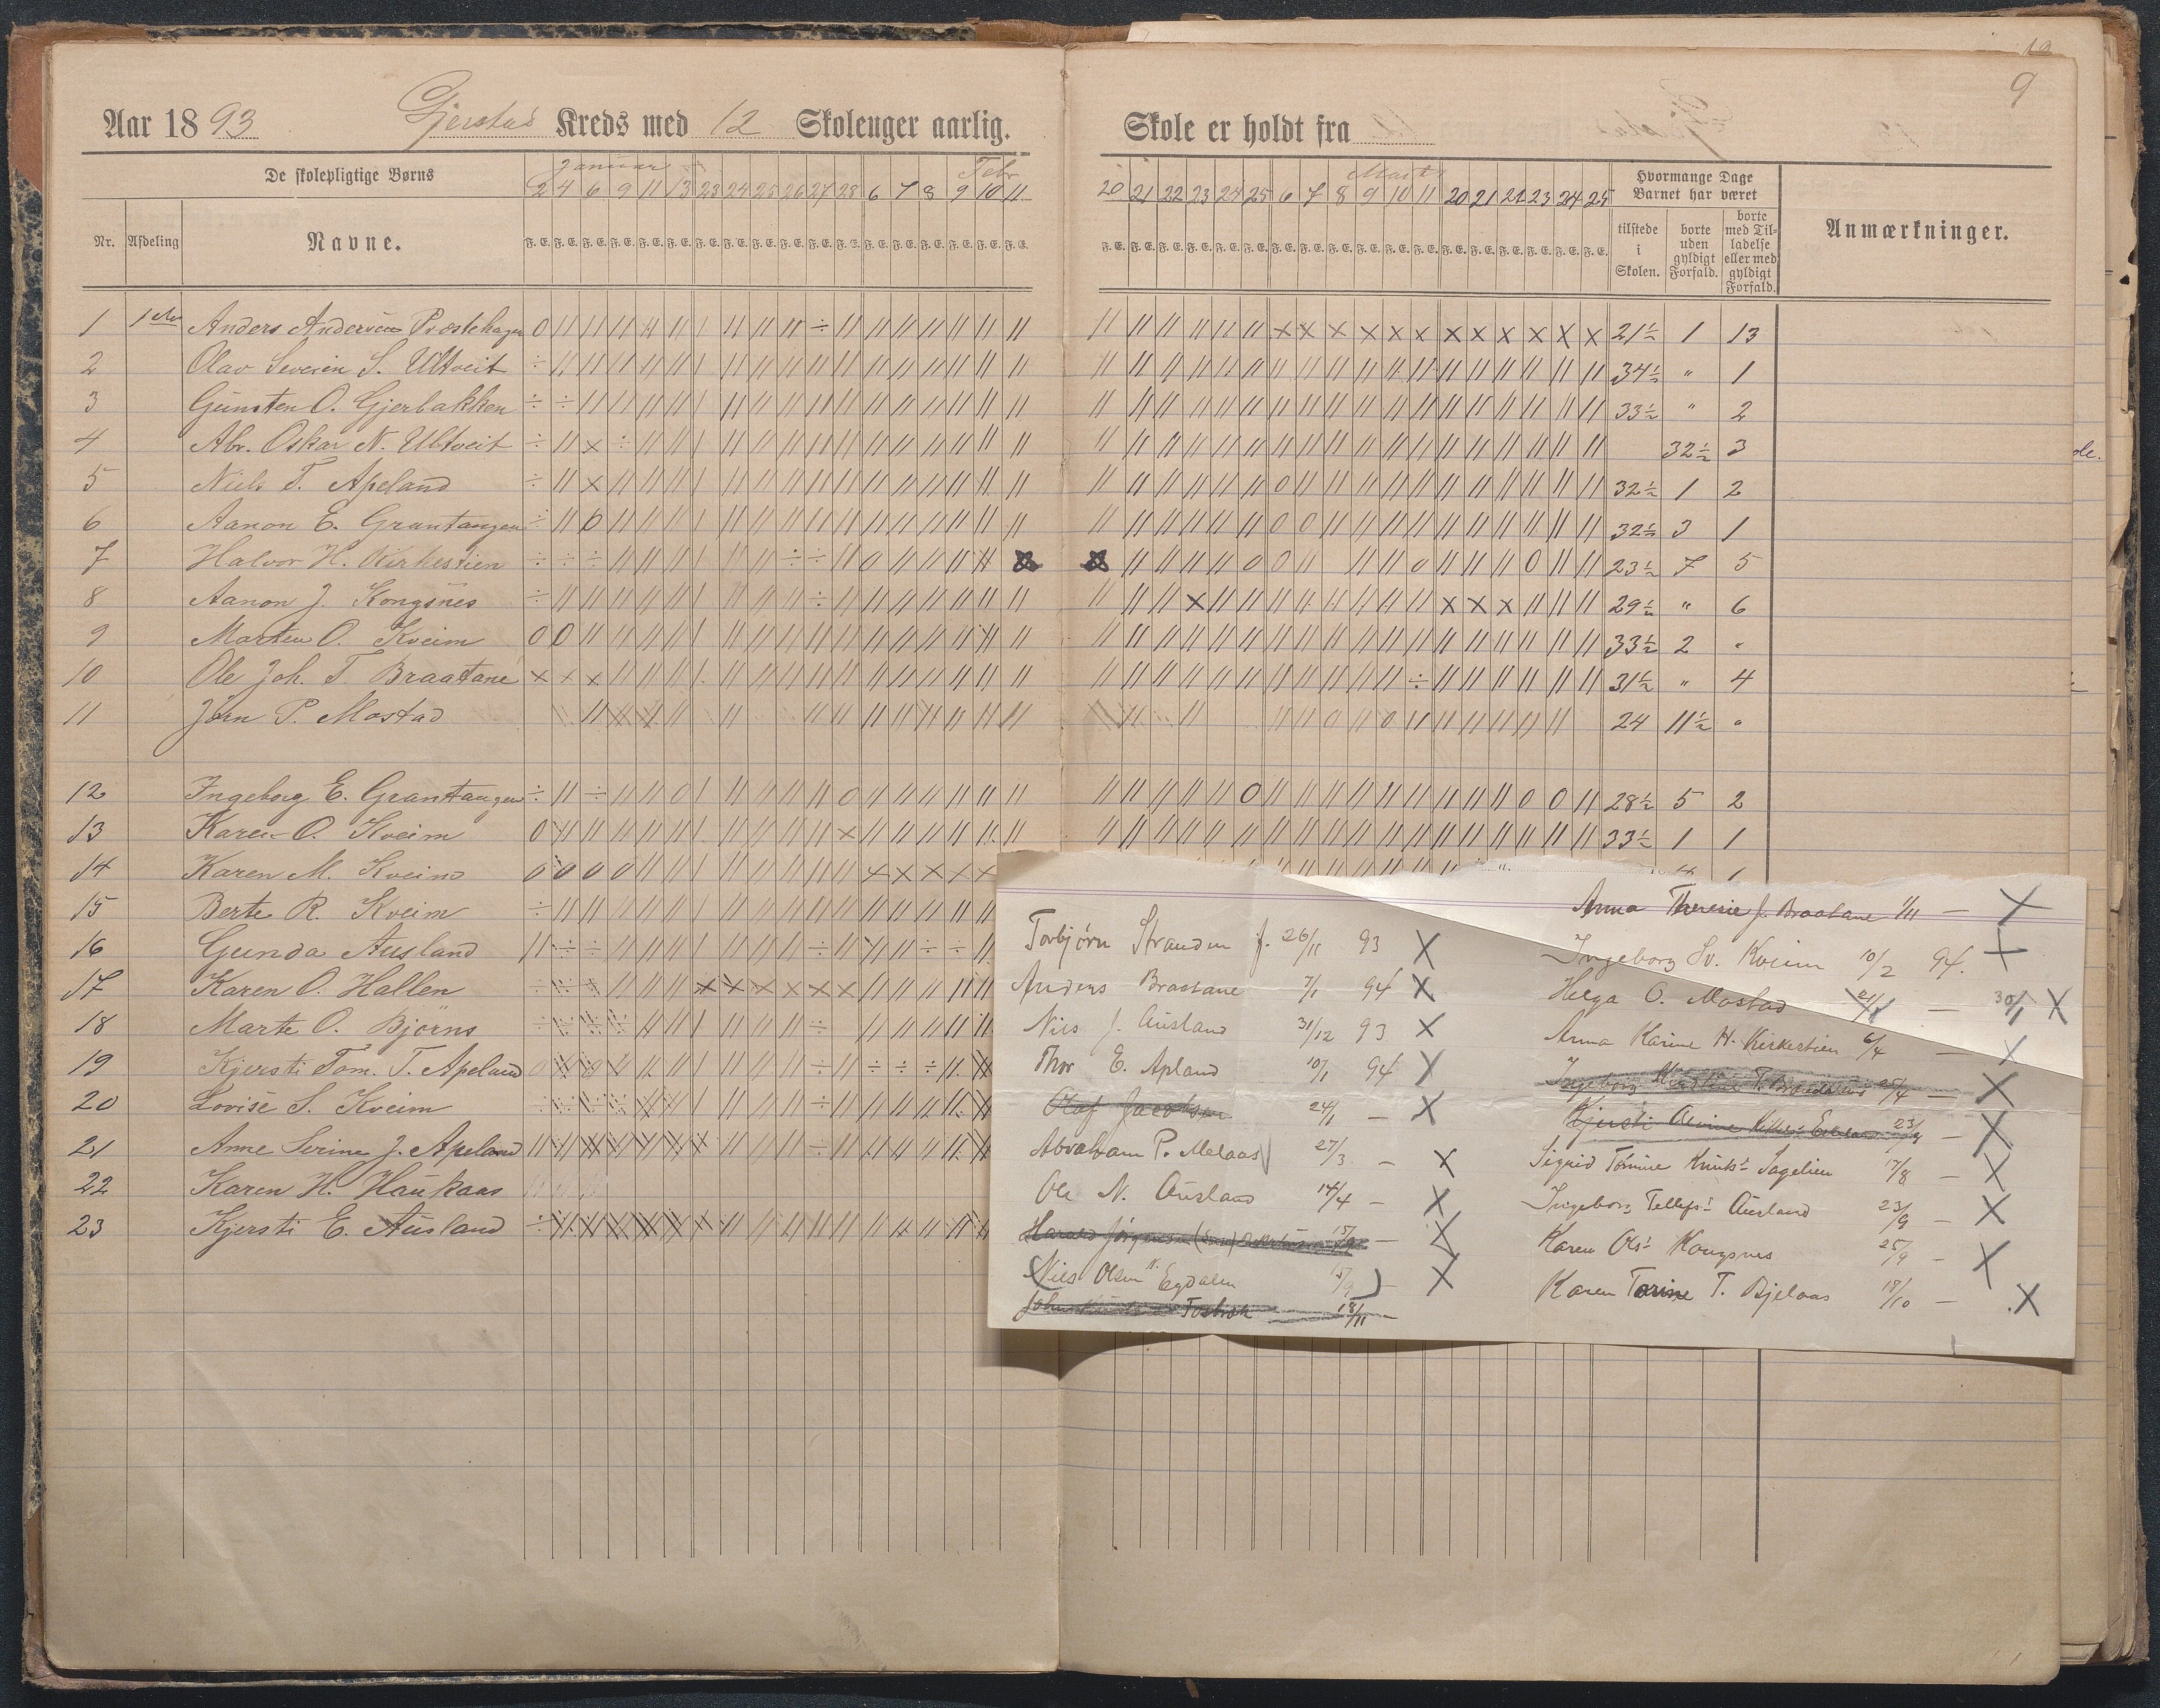 9
Aar 1893 Gjerstad Kreds med 12 Skoleuger aarlig.
Skole er holdt fra
De skolepligtige Børns
Januar
Febr
2 4 6 9 11 13 23 24 25 26 27 28 6 7 8 9 10 11
Nr. Afdeling Navne.
Marts
20 21 22 23 24 25 6 7 8 9 10 11 20 21 22 23 24 25
Hvormange Dage Barnet har været
tilstede i Skolen.
borte uden gyldigt Forfald.
borte med Tilladelse eller med gyldigt Forfald.
Anmærkninger.
1 1ste Anders Andersen Præstehagen 21½ 1 13
2 Olav Severin S. Ultveit 34½ " 1
3 Gunsten O. Gjerbakken 33½ " 2
4 Abr. Oskar N. Ultveit 32½ 3
5 Niels T. Apeland 32½ 1 2
6 Aanon E. Grantangen 32½ 3 1
7 Halvor H. Kirkestien 23½ 7 5
8 Aanon J. Kongsnes 29½ " 6
9 Martin O. Kveim 33½ 2 "
10 Ole Joh. T. Braatane 31½ " 4
11 Jørn P. Mostad 24 11½ "
12 Ingeborg E. Grantangen 28½ 5 2
13 Karen O. Kveim 33½ 1 1
14 Karen M. Kveim
15 Berte R. Kveim
16 Gunda Ausland
17 Karen O. Hallen
18 Marte O. Bjørns
19 Kjersti Tom. T. Apeland
20 Lovise S. Kveim
21 Anne Serine J. Apeland
22 Karen H. Haukaas
23 Kjersti E. Ausland
Torbjørn Stranden f. 26/11 93 X
Anders Braatane 7/1 94 X
Nils J. Ausland 31/12 93 X
Thor E. Apland 10/1 94 X
Olaf Jacobsen 24/1 – X
Abraham P. Melaas 27/3 – X
Ole N. Ausland 14/4 – X
Harald Jørgensen 15/9 – X
(Nils Olsen Egdalen 15/9) – X
John Tosbræk 18/11 –
Anna Theresie J. Braatane 1/11 – X
Ingeborg Sv. Kveim 10/2 94. X
Helga O. Mostad 21/1 – 30/1 X
Anna Karine H. Kirkestien 6/4 – X
Ingeborg T. Braatane 25/4 – X
Kjersti Olivine 23/9 – X
Sigrid Tomine Knutsd. Sagelien 17/8 – X
Ingeborg Tellefsd. Ausland 23/9 – X
Karen Olsd. Kongsnes 25/9 – X
Karen Torine T. Bjelaas 18/10 – X